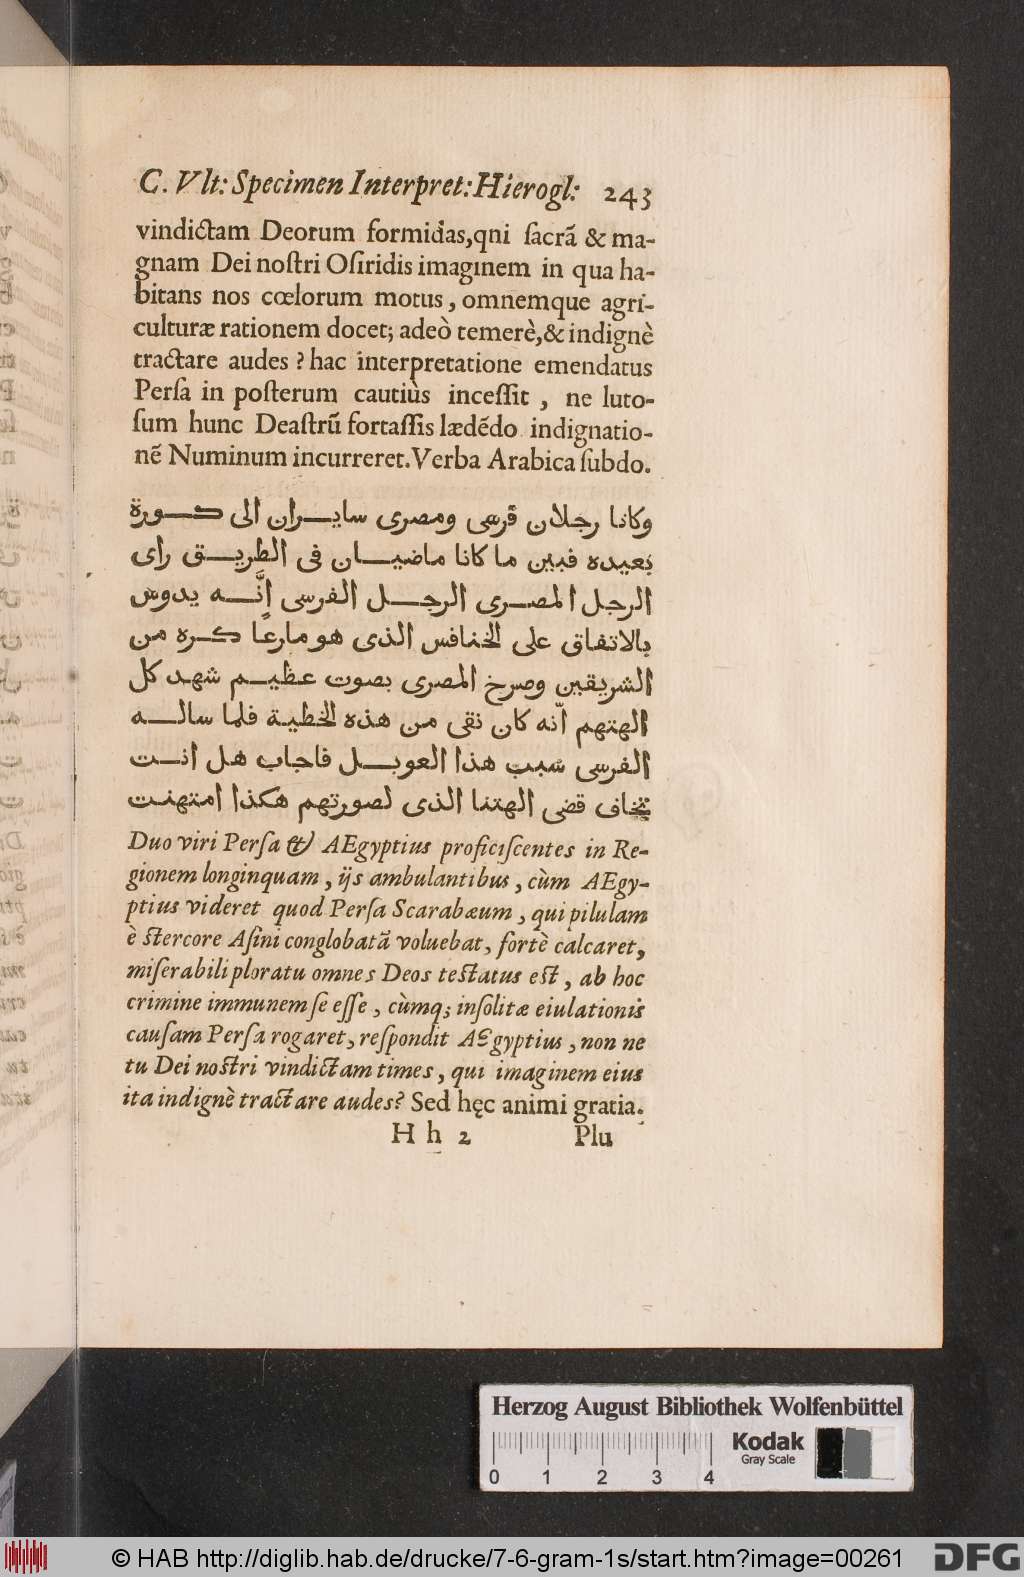 C. Vlt: Specimen Interpret: Hierogl: 243
vindictam Deorum formidas, qni ſacrã & ma-
gnam Dei noſtri Oſiridis imaginem in qua ha-
bitans nos cœlorum motus, omnemque agri-
culturæ rationem docet; adeò temerè, & indignè
tractare audes ? hac interpretatione emendatus
Perſa in poſterum cautiùs inceſſit , ne luto-
ſum hunc Deaſtrũ fortaſſis lædẽdo indignatio-
nẽ Numinum incurreret. Verba Arabica ſubdo.
وكانا رجلان فرسى ومصرى سايران الى كورة
بعيده فبين ما كانا ماضيان فى الطريق راى
الرجل المصرى الرجل الفرسى انَّه يدوس
بالاتفاق على الخنافس الذى هو مارعًا كره من
الشريقين وصرخ المصرى بصوت عظيم شهد كل
الهتهم انّه كان نقى من هذه الخطية فلما ساله
الفرسى سبب هذا العوبل فاجاب هل انت
تخاف قضى الهتنا الذى لصورتهم هكذا امتهنت
Duo viri Perſa & AEgyptius proficiſcentes in Re-
gionem longinquam, ijs ambulantibus, cùm AEgy-
ptius videret quod Perſa Scarabæum, qui pilulam
è ſtercore Aſini conglobatã voluebat, fortè calcaret,
miſerabili ploratu omnes Deos teſtatus eſt, ab hoc
crimine immunem ſe eſſe, cùmq; inſolitæ eiulationis
cauſam Perſa rogaret, reſpondit AEgyptius, non ne
tu Dei noſtri vindictam times, qui imaginem eius
ita indignè tractare audes? Sed hęc animi gratia.
H h 2 Plu
Herzog August Bibliothek Wolfenbüttel
0 1 2 3 4 Kodak
Gray Scale
© HAB http://diglib.hab.de/drucke/7-6-gram-1s/start.htm?image=00261 DFG